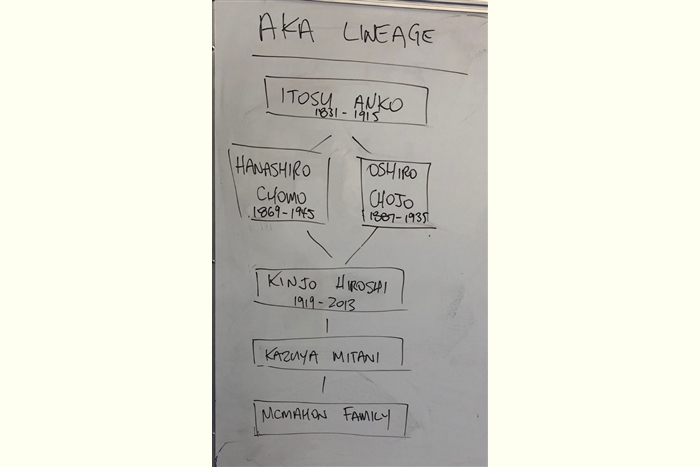 AKA LINEAGE
ITOSU ANKO
1831-1915
HANASHIRO
CHOMO
1869-1945
OSHIRO
CHOJO
1887-1935
KINJO HIROSHI
1919-2013
KAZUYA MITANI
MCMAHON FAMILY